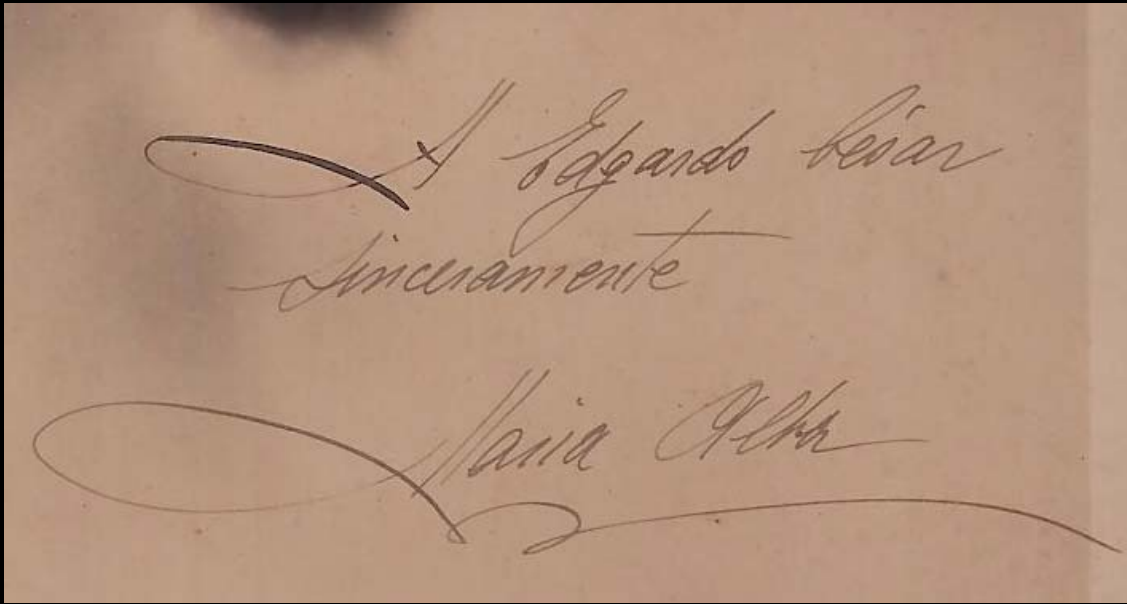 A Edgardo César
sinceramente
Maria Alba